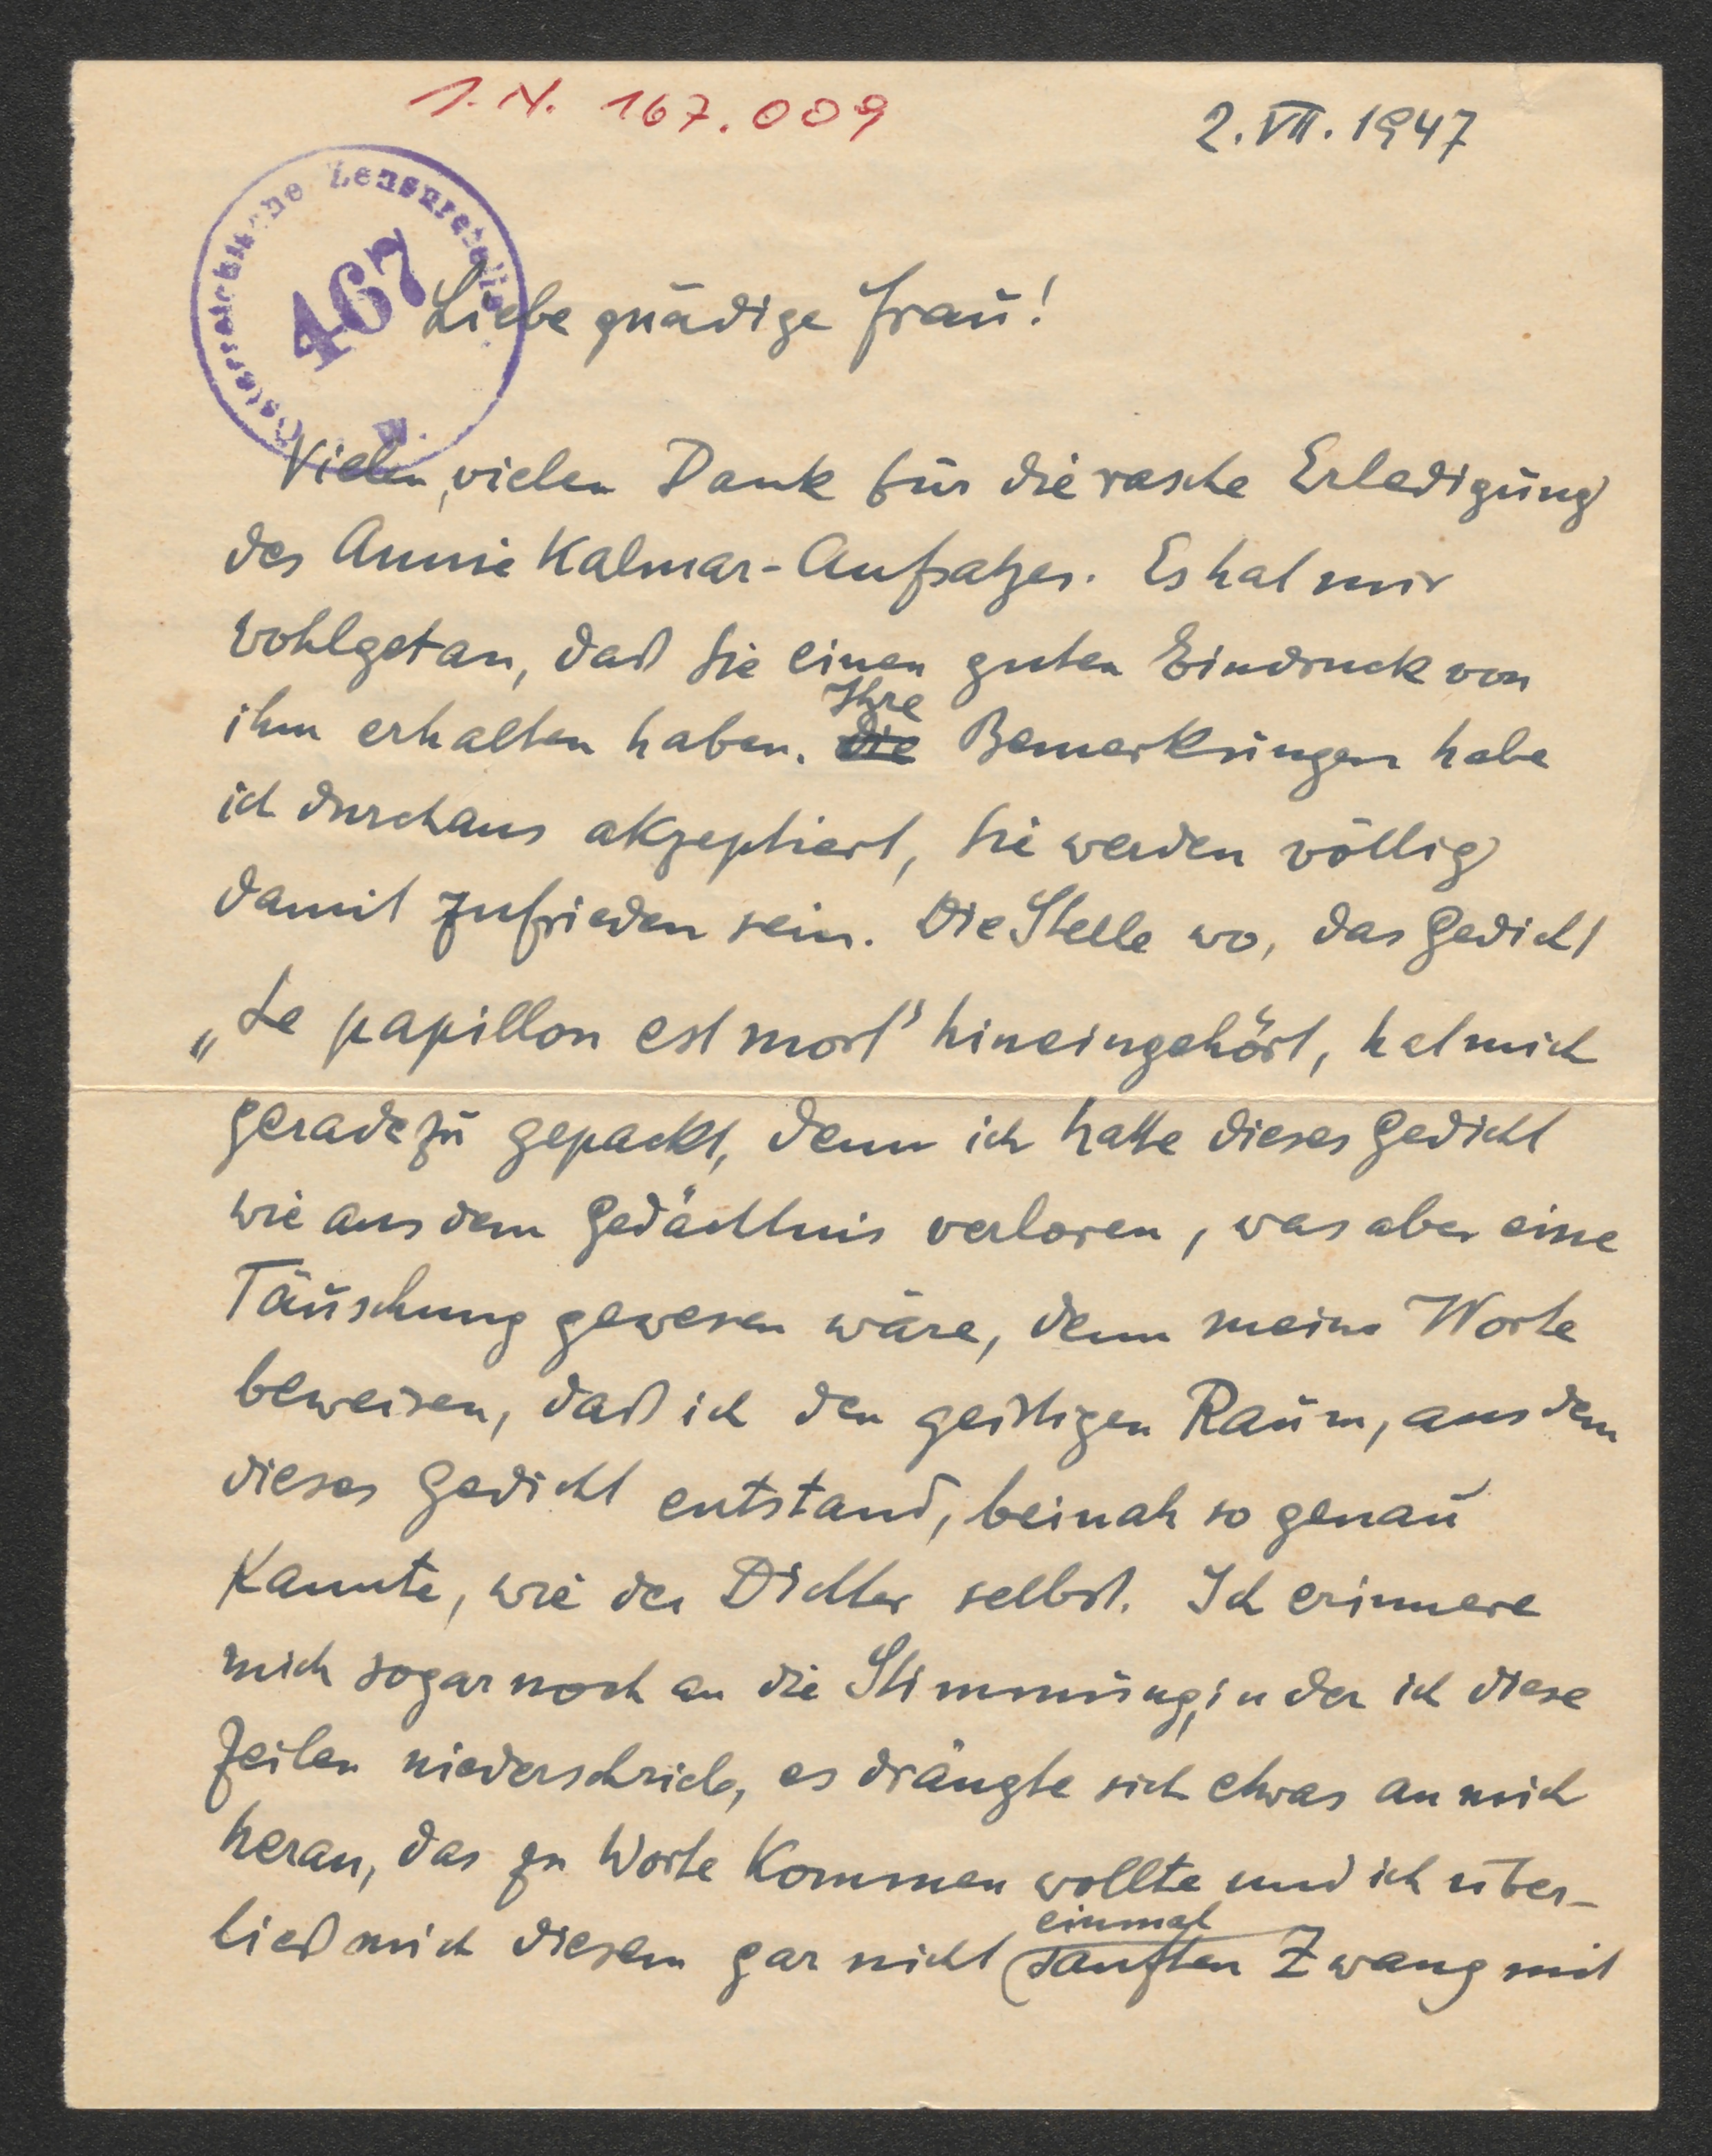 I. N. 167.009
2. VII. 1947
Österreichische Zensurstelle
467
Liebe gnädige Frau!
Vielen, vielen Dank für die rasche Erledigung
des Annie Kalmar-Aufsatzes. Es hat mir
wohlgetan, daß Sie einen guten Eindruck von
Ihre
ihm erhalten haben. die Bemerkungen habe
ich durchaus akzeptiert, Sie werden völlig
damit zufrieden sein. Die Stelle wo, das Gedicht
„Le papillon est mort" hineingehört, hat mich
geradezu gepackt, denn ich hatte dieses Gedicht
wie aus dem Gedächtnis verloren, was aber eine
Täuschung gewesen wäre, denn meine Worte
beweisen, daß ich den geistigen Raum, aus dem
dieses Gedicht entstand, beinah so genau
kannte, wie der Dichter selbst. Ich erinnere
mich sogar noch an die Stimmung, in der ich diese
Zeilen niederschrieb, es drängte sich etwas an mich
heran, das zu Worte kommen wollte und ich über-
einmal
ließ mich diesem gar nicht sanften Zwang mit